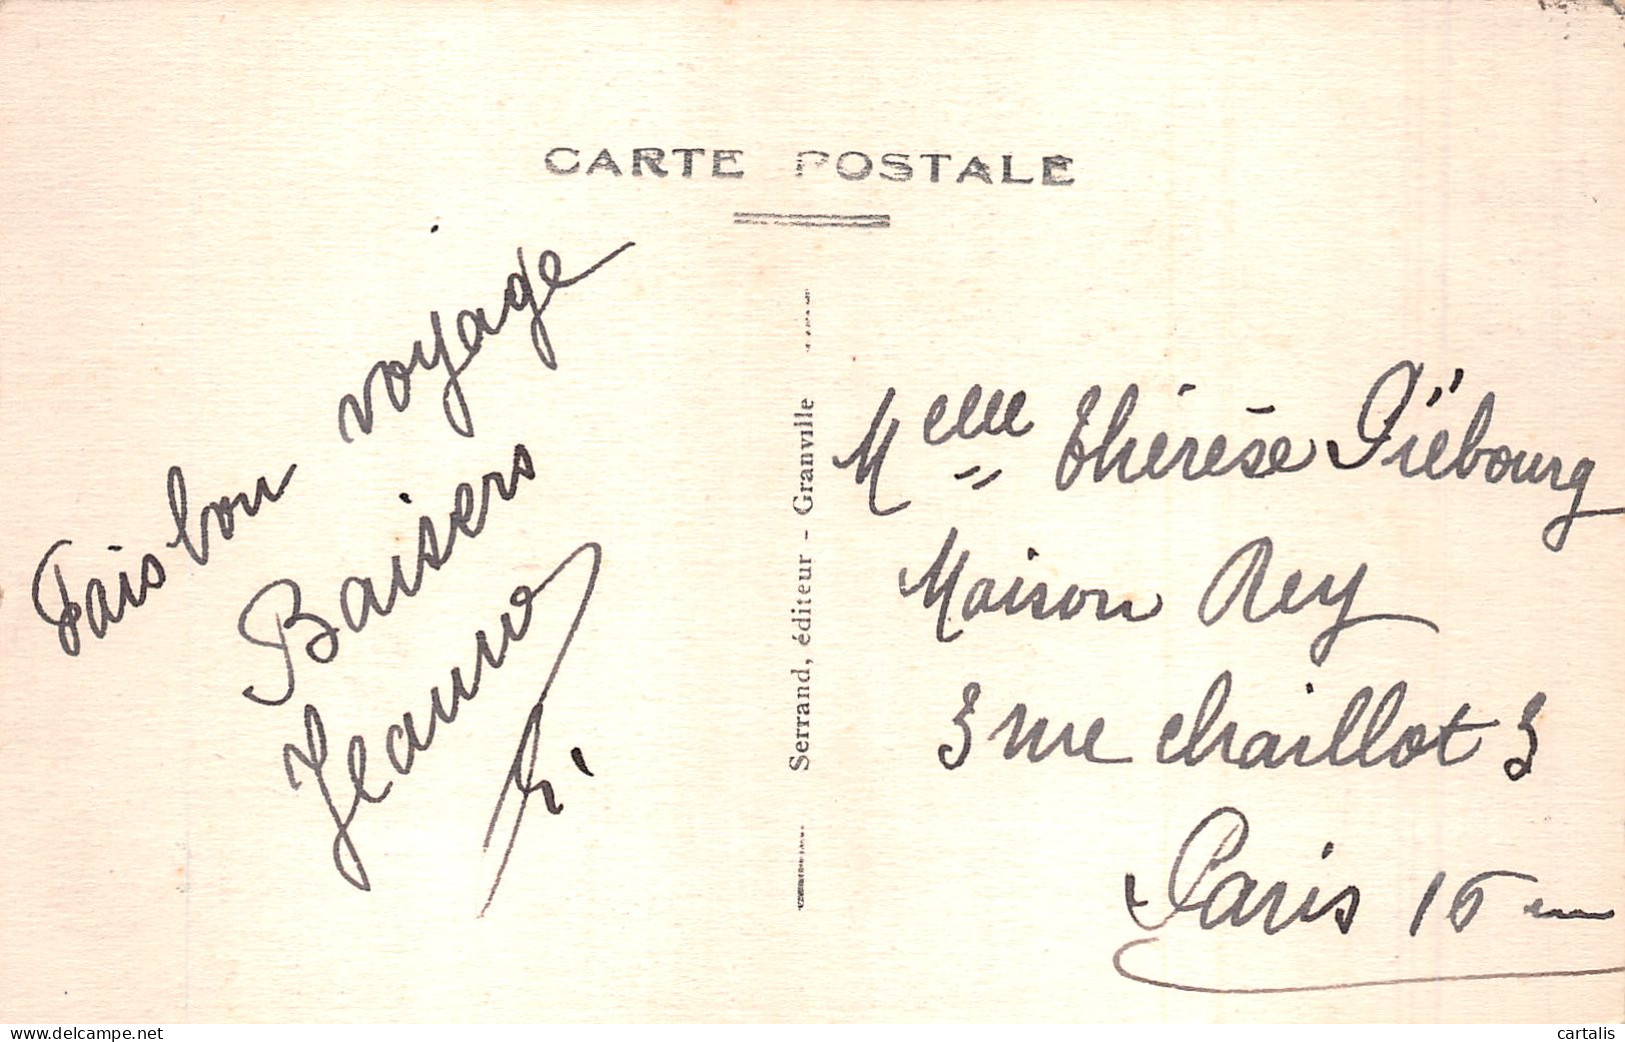 CARTE POSTALE
Fais bon voyage
Baisers
Jeanne
Serrand, éditeur - Granville
Melle Thérèse Piëbourg
Maison Rey
3 rue Chaillot 3
Paris 16 eme
delcampe.net
cartalis